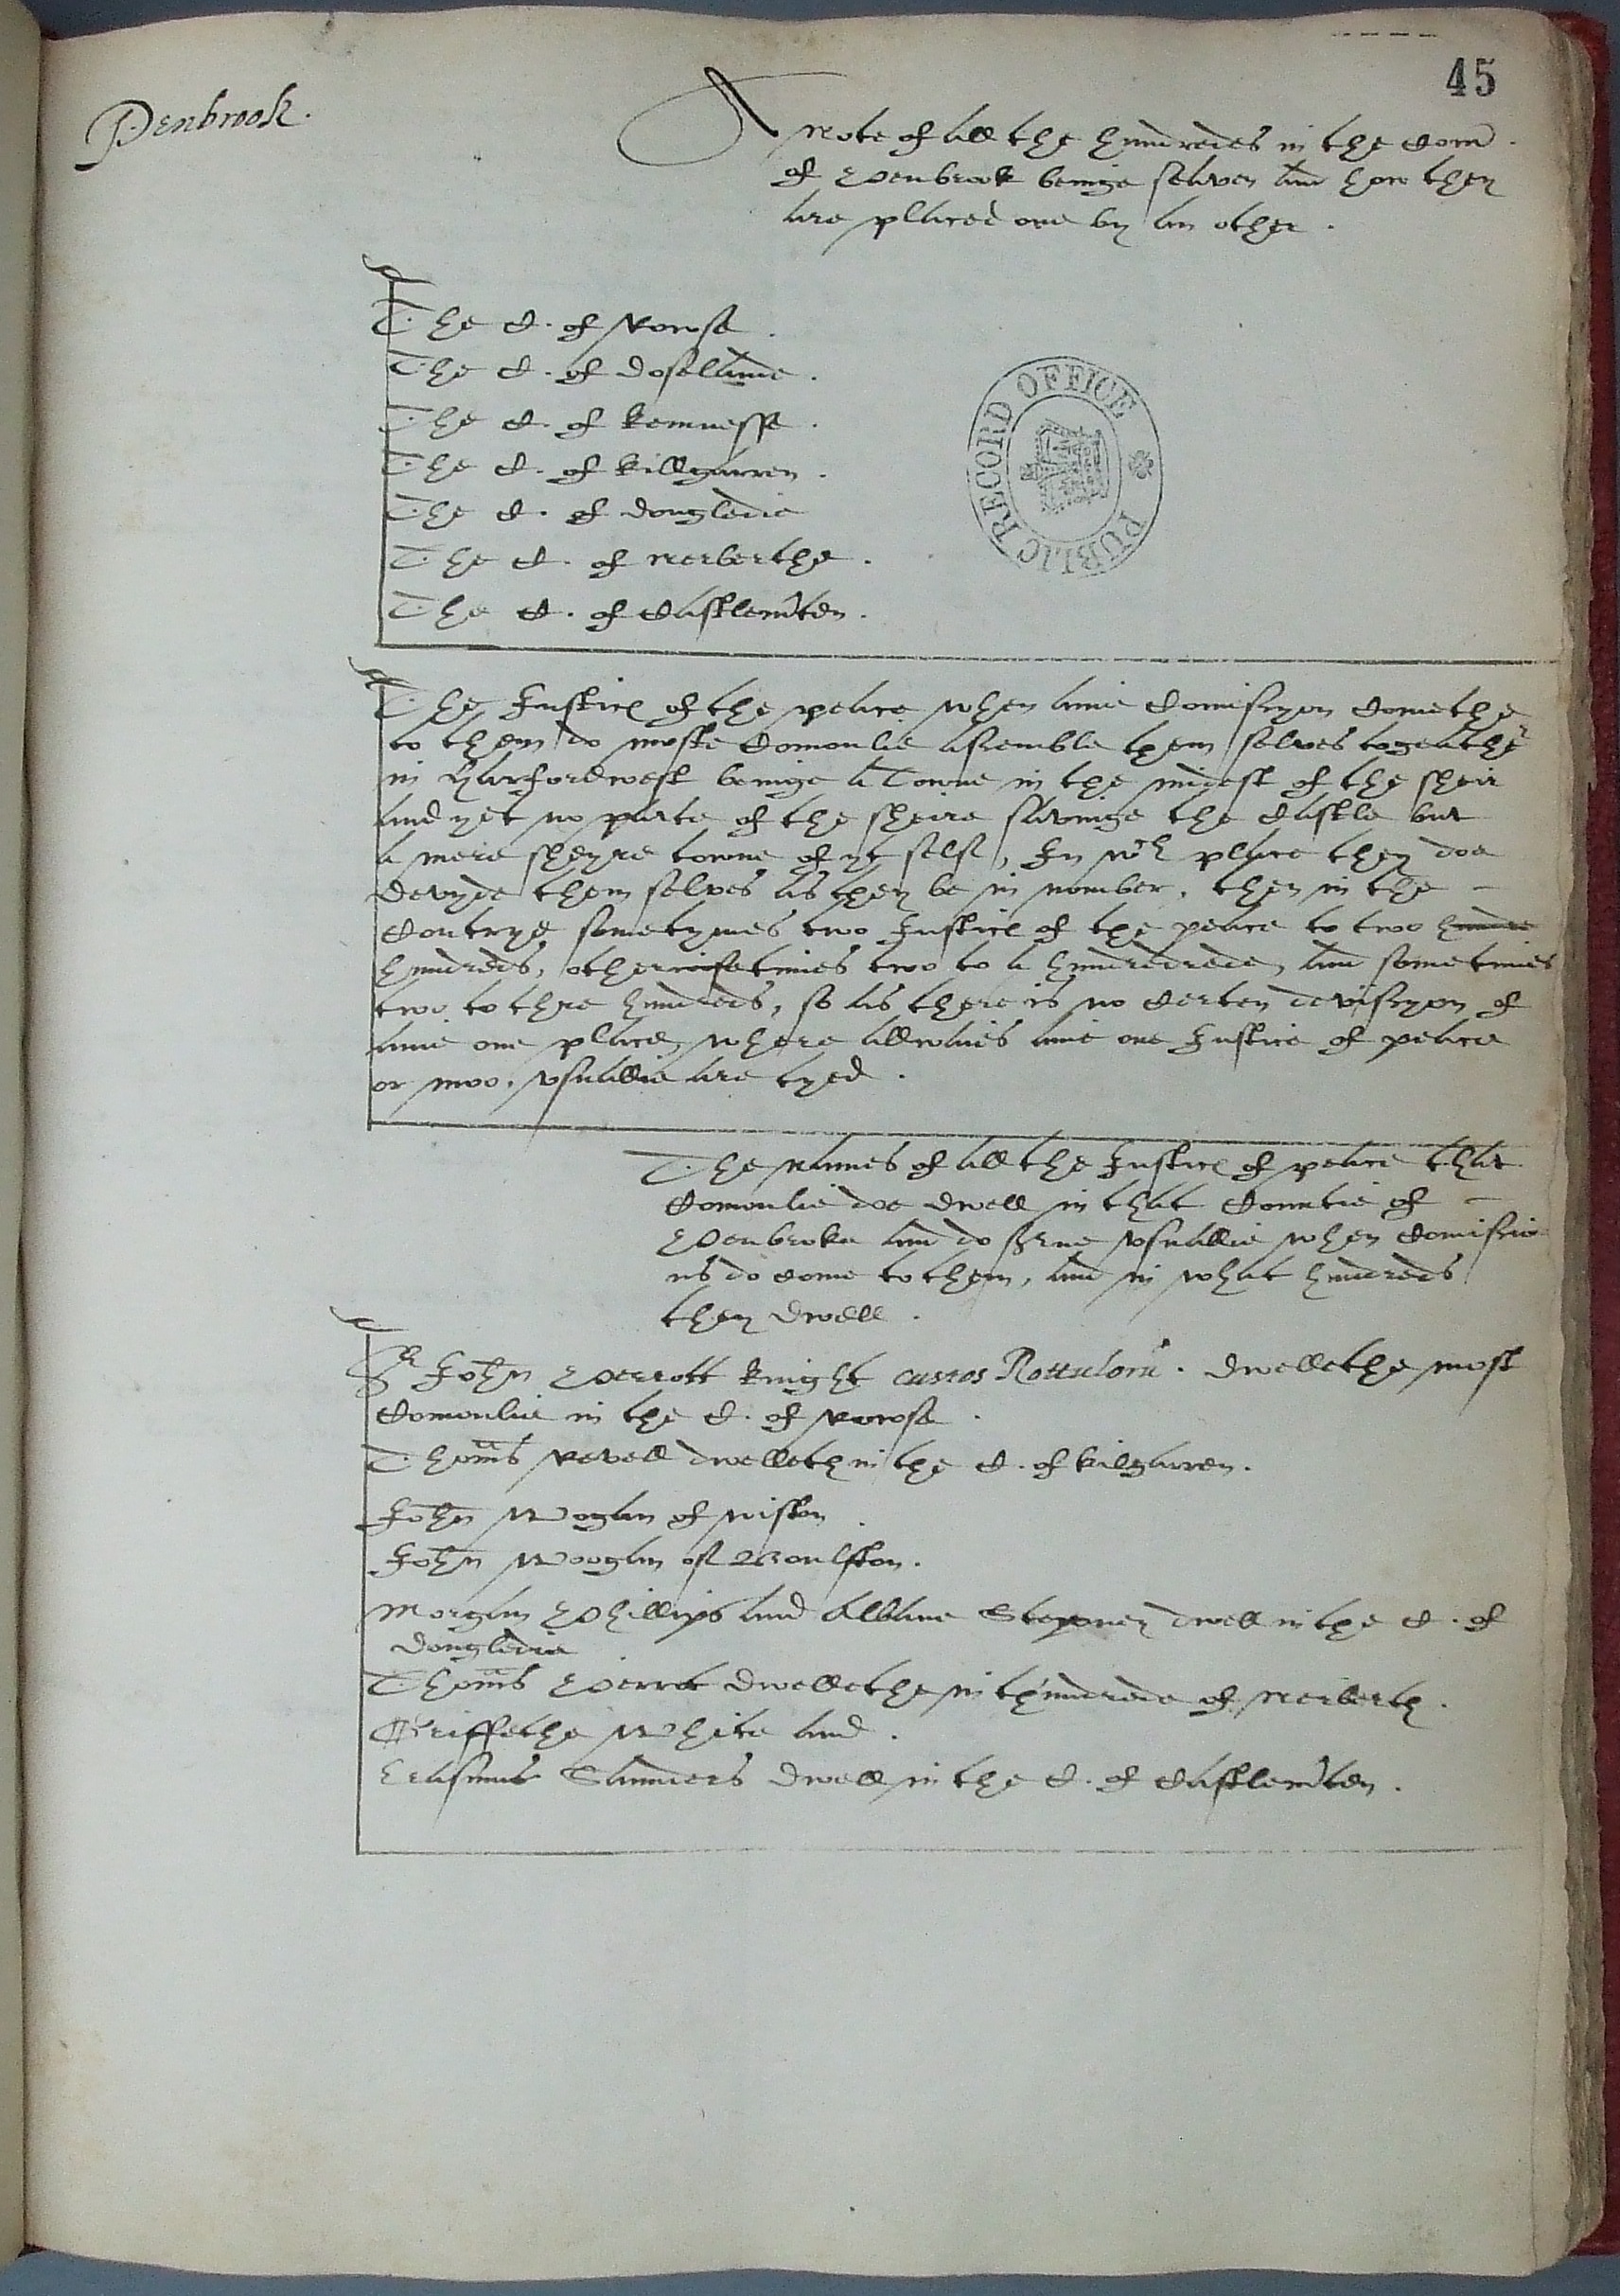 45
Penbrook.
A note of all the hundredes in the Com̃
of Penbrook beinge seaven and how they
are placed one by an other.
The C. of Rowse.
The C. of Dosellande.
The C. of Kemnesse.
The C. of Killgarren.
The C. of Dongledie
The C. of Nerberthe.
The C. of Castlem̃ten.
PUBLIC RECORD OFFICE
The Justices of the peace when anie Comissyon Comethe
to them do moste Comonlie assemble them selves togeather
in Harfordwest beinge a Towne in the midest of the sheir
and yet no parte of the sheire savinge the Castle but
a mere sheyre towne of yt self, In wch place they doe
devyde them selves as they be in nomber, then in the
Contrye sometymes two Justices of the peace to two hundre
hundreds, otherwisetimes two to a hundredrede, and sometimes
two to thre hundreds, so as there is no certen devisyon of
anie one place, where allwaies anie one Justice of peace
or moo, vsuallie are tyed.
The names of all the Justices of peace that
Comonlie doe dwell in that Countie of
Penbroke and do serue vsuallie when Comissio
ns do come to them, and in what hundreds
they dwell.
Sr John Perrott knight custos Rottuloru. dwellethe most
Comonlie in the C. of Rowse.
Thom̃s Revell dwelleth in the C. of Kilgarren.
John Wogan of Wiston
John Woogan of Boulston.
Morgan Phillips and Albane Stepney dwell in the C. of
Dongledie
Thom̃s Perrot dwellethe in th'undrede of Nerberth.
Griffethe White and.
Erasmus Saunders dwell in the C. of Castlem̃ten.